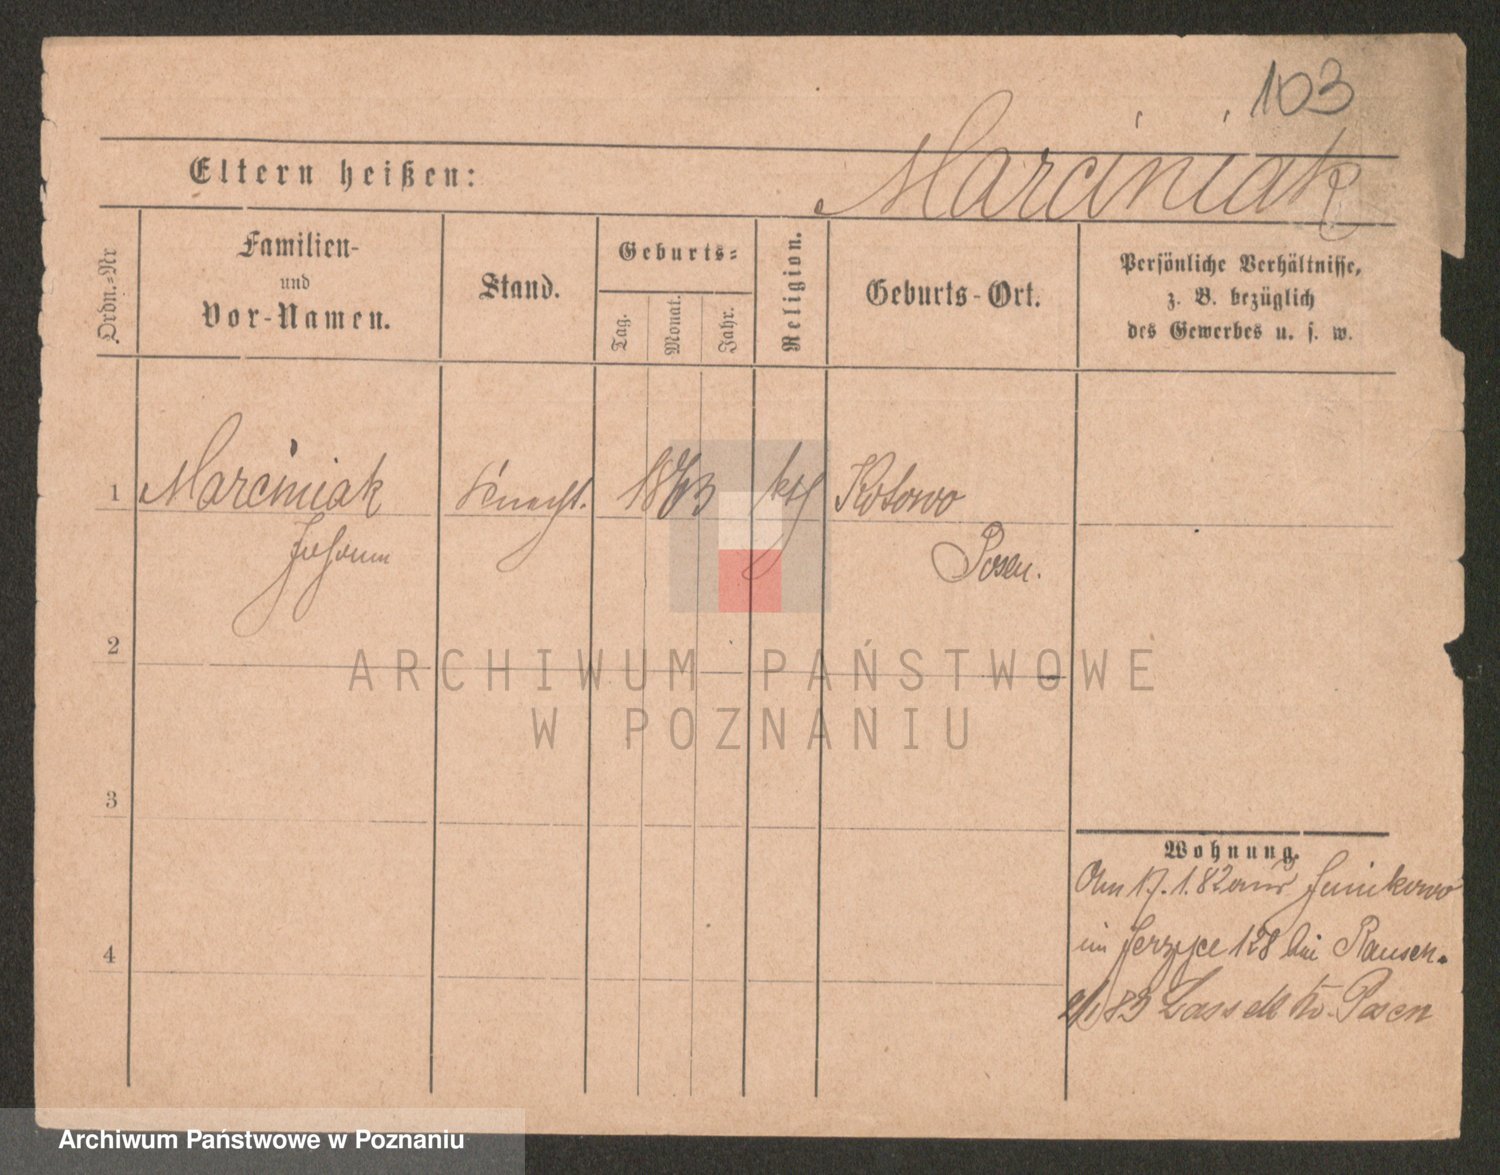 103
Eltern heißen: Marciniak
Ordn.-Nr
Familien-
und
Vor-Namen.
Stand.
Geburts-
Tag.
Monat.
Jahr.
Religion.
Geburts-Ort.
Persönliche Verhältnisse,
z. B. bezüglich
des Gewerbes u. s. w.
1 Marciniak Knecht. 1863 kth Kotowo
Johann Posen.
2
ARCHIWUM PAŃSTWOWE
W POZNANIU
3
Wohnung.
Am 17.1.82 aus Junikowo
in Jerzyce 128 bei Rausch.
4
2/1 83 Lassek Kr. Posen
Archiwum Państwowe w Poznaniu